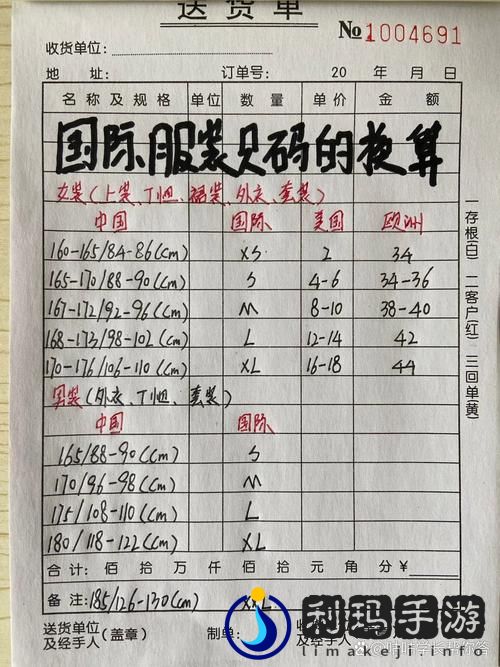 送货单
№1004691
收货单位：
地 址： 订单号： 20 年 月 日
名称及规格 单位 数量 单价 金额
国际服装尺码的换算
女装(上装、T恤、裙装、外衣、套装)
中国 国际 美国 欧洲
160-165/84-86(cm) XS 2 34
165-170/88-90(cm) S 4-6 34-36
167-172/92-96(cm) M 8-10 38-40
168-173/98-102(cm) L 12-14 42
170-176/106-110(cm) XL 16-18 44
男装(外衣、T恤、套装)
中国 国际
165/88-90(cm) S
170/96-98(cm) M
175/108-110(cm) L
180/118-122(cm) XL
合计： 佰 拾 万 仟 佰 拾 元 角 分 ¥
备注：185/126-130(cm) XXL
送货单位及经手人(盖章) 制单： 收货
及经手人
一存根(白) 二客户(红) 三回单(黄)
利玛手游
limakeji.info